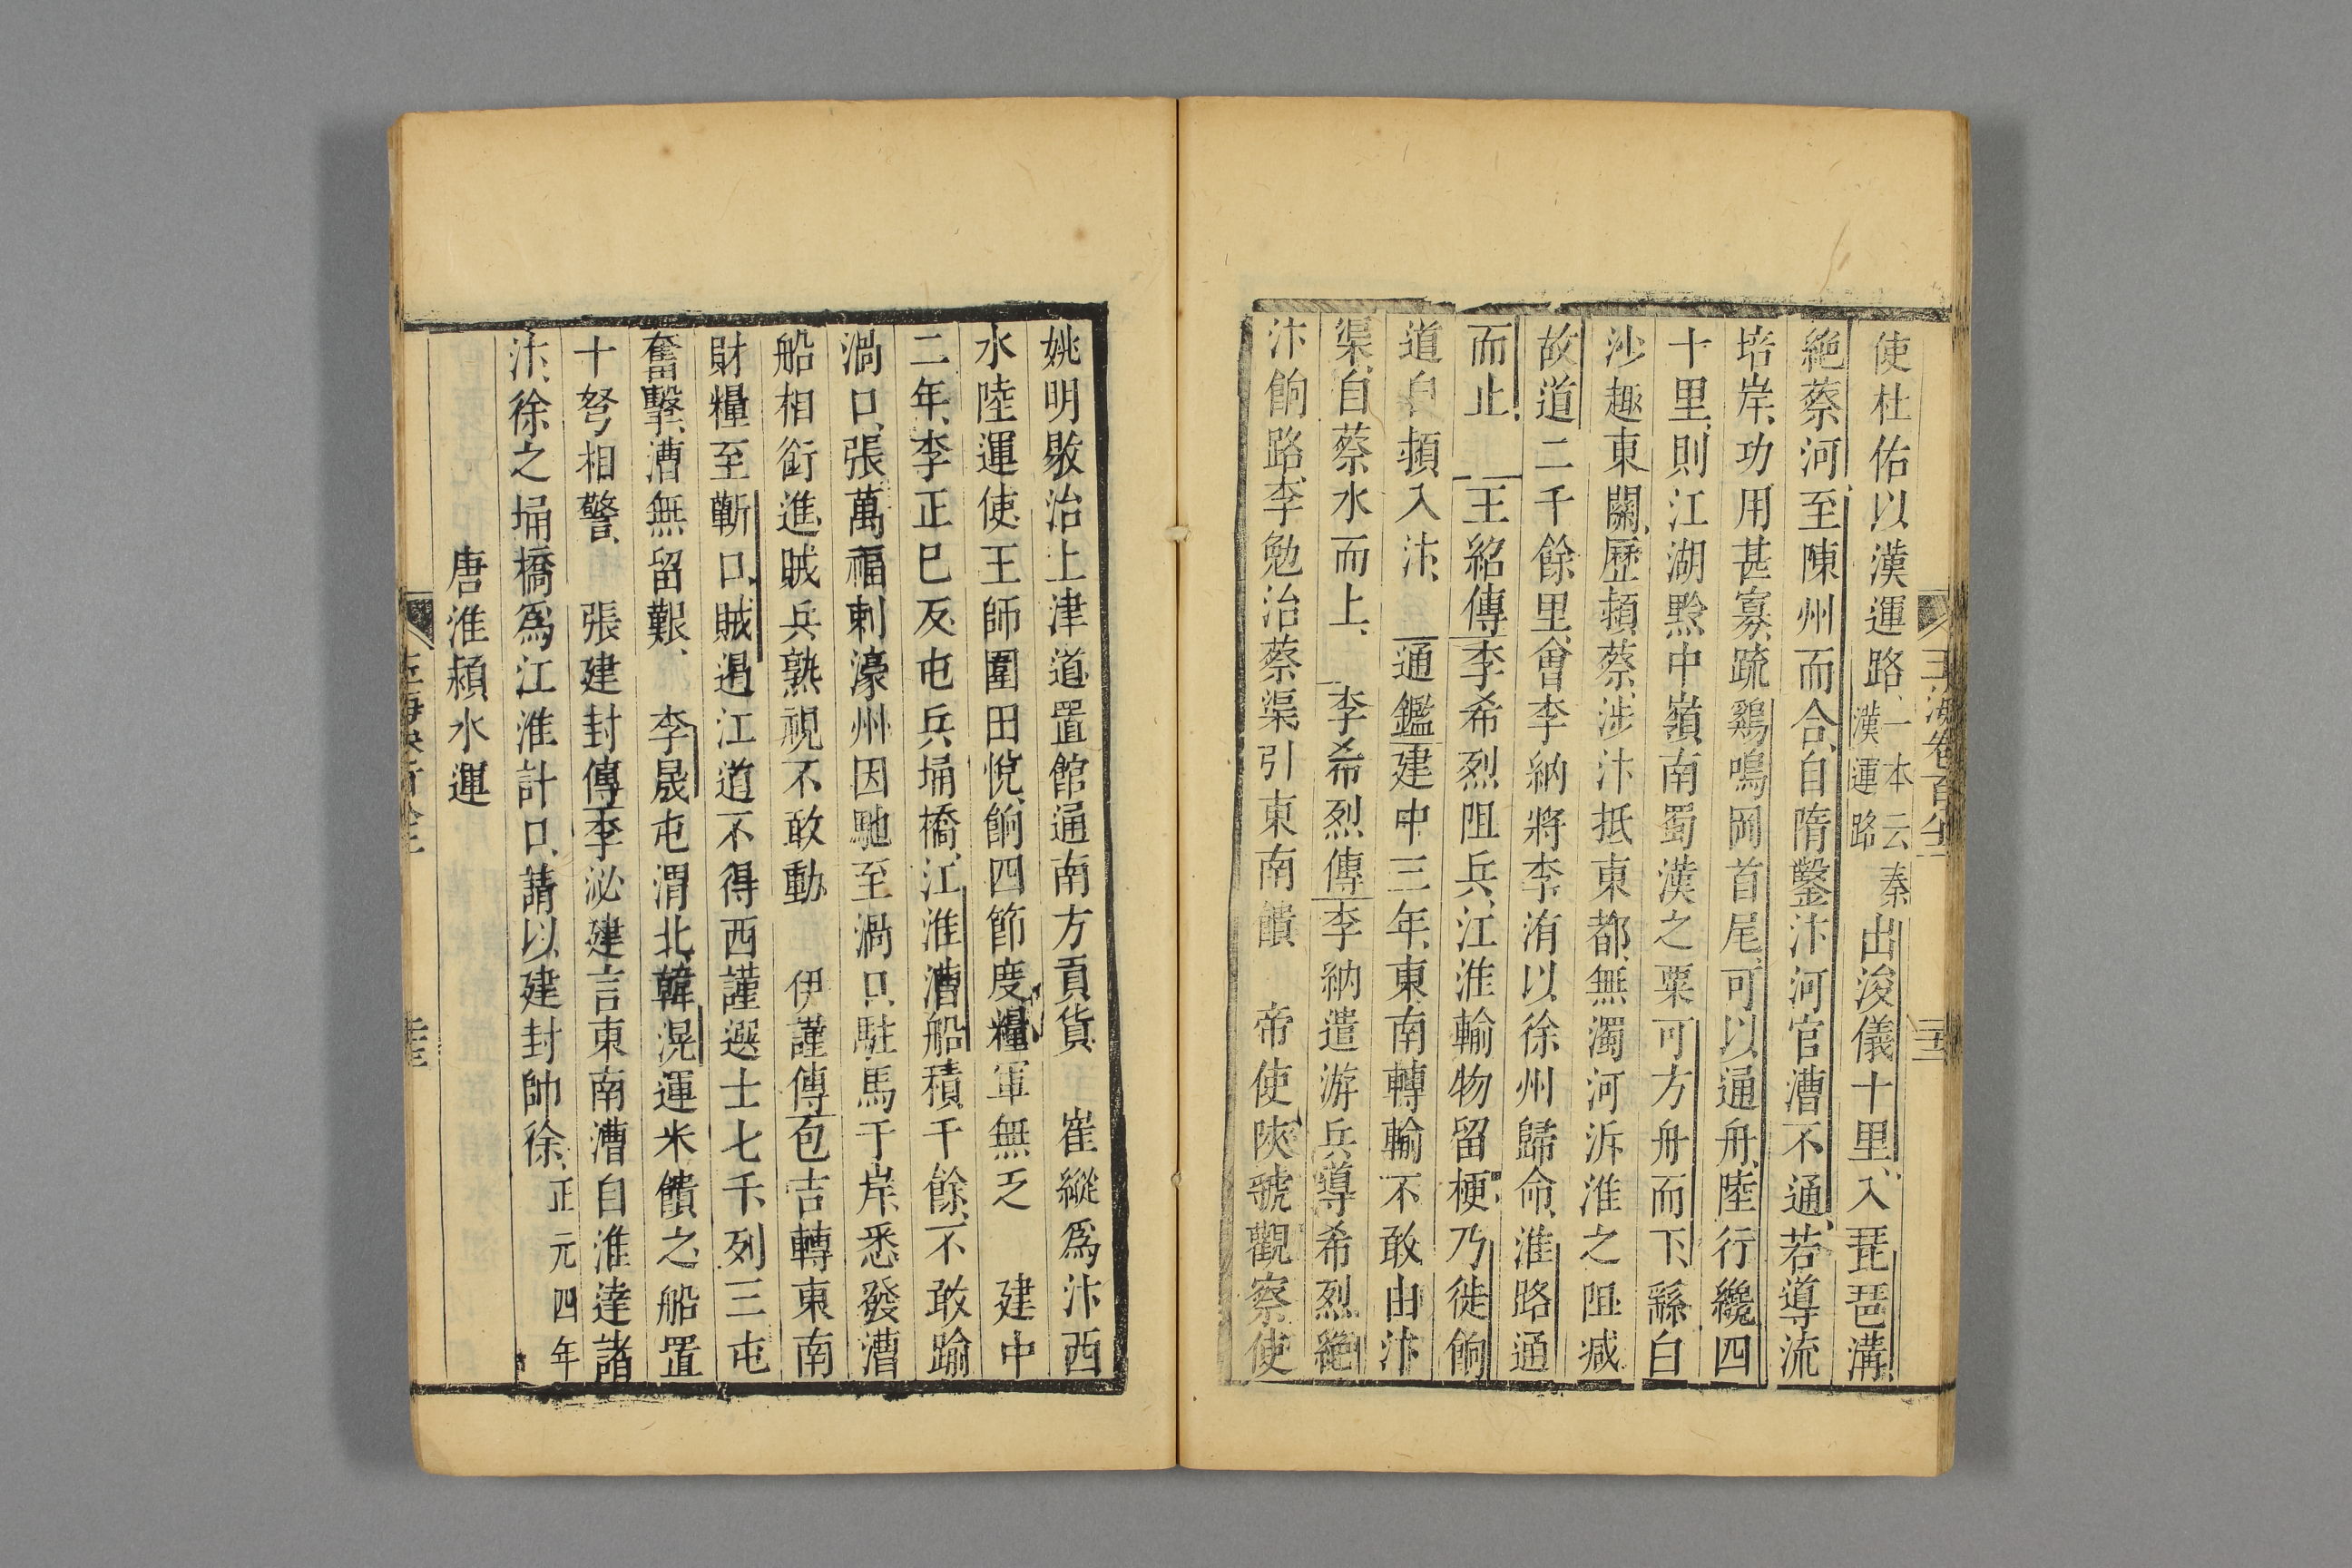 使杜佑以漢運路一本云秦漢運路出浚儀十里入琵琶溝
絶蔡河至陳州而合自隋鑿汴河官漕不通若導流
培岸功用甚寡疏雞鳴岡首尾可以通舟陸行纔四
十里則江湖黔中嶺南蜀漢之粟可方舟而下繇白
沙趣東關歷潁蔡涉汴抵東都無濁河泝淮之阻減
故道二千餘里會李納將李洧以徐州歸命淮路通
而止 王紹傳李希烈阻兵江淮輸物留梗乃徙餉
道自潁入汴 通鑑建中三年東南轉輸不敢由汴
渠自蔡水而上 李希烈傳李納遣游兵導希烈絶
汴餉路李勉治蔡渠引東南饋 帝使陝虢觀察使
姚明敭治上津道置館通南方貢貨 崔縱爲汴西
水陸運使王師圍田悅餉四節度糧軍無乏 建中
二年李正巳反屯兵埇橋江淮漕船積千餘不敢踰
渦口張萬福刺濠州因馳至渦口駐馬于岸悉發漕
船相銜進賊兵熟視不敢動 伊謹傳包吉轉東南
財糧至蘄口賊遏江道不得西謹選士七千列三屯
奮擊漕無留艱 李晟屯渭北韓滉運米饋之船置
十弩相警 張建封傳李泌建言東南漕自淮達諸
汴徐之埇橋爲江淮計口請以建封帥徐正元四年
唐淮潁水運